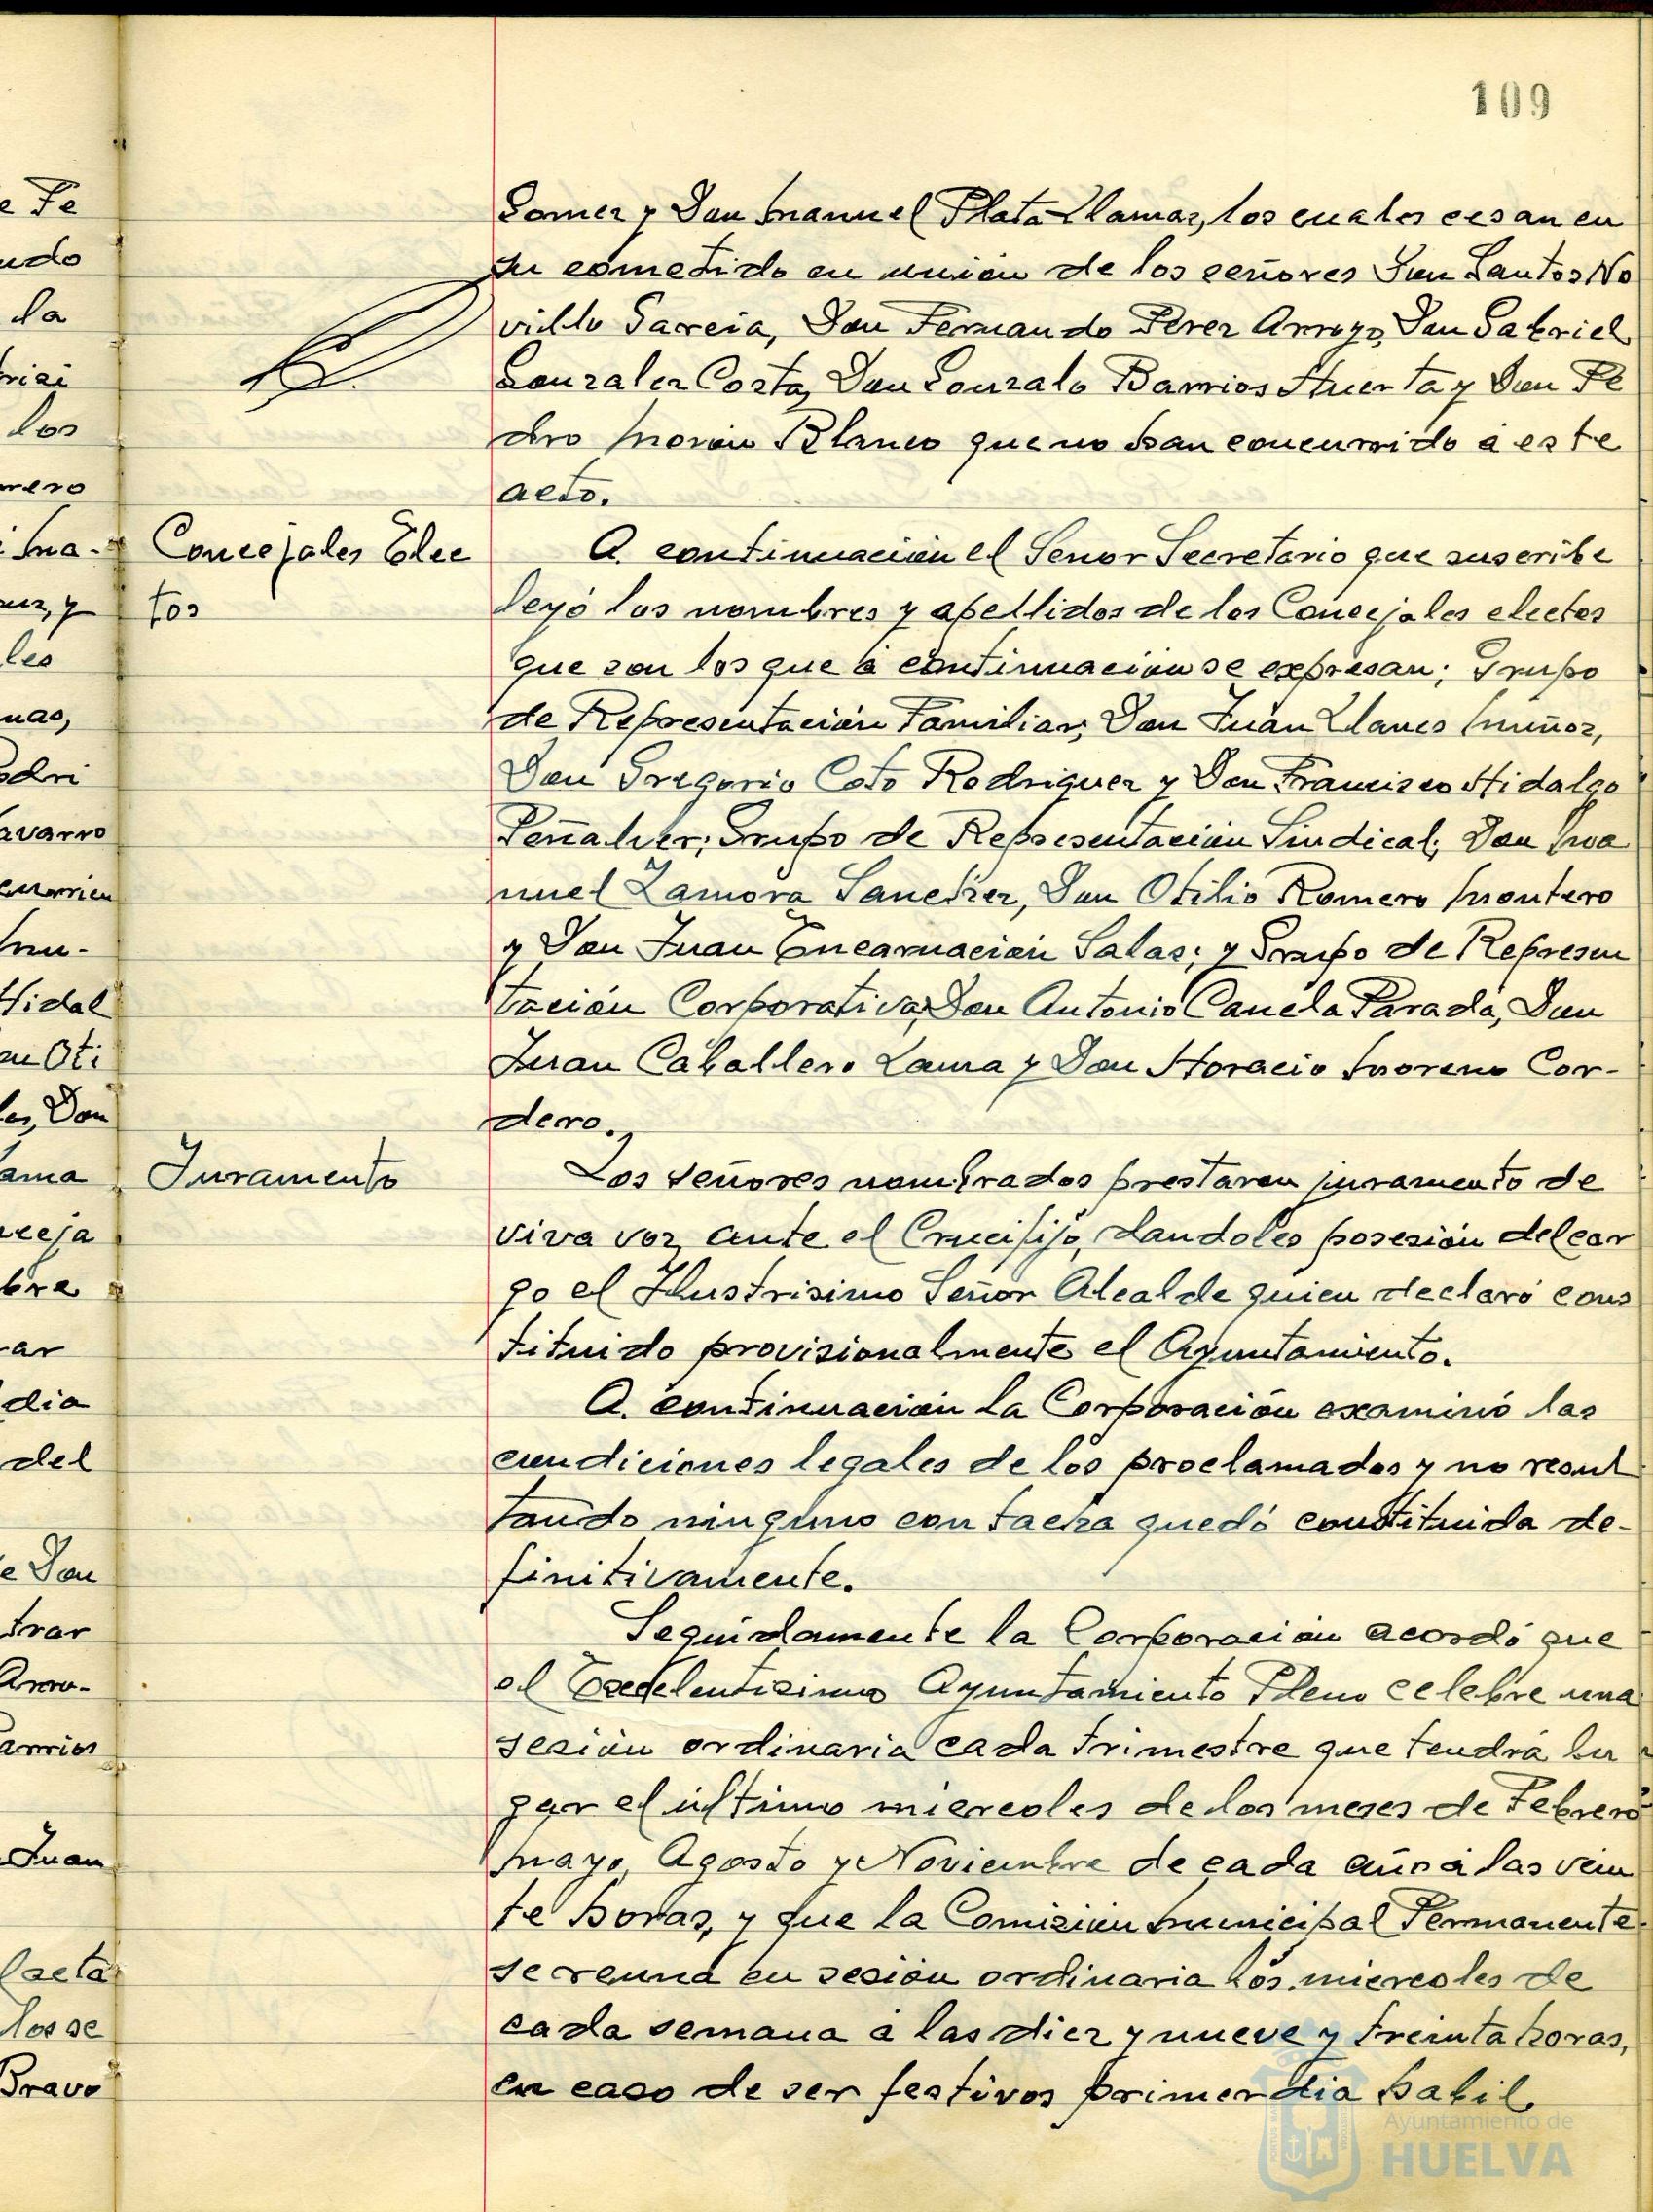 109
e Fe
udo
la
los
mero
i Ma-
les
uas,
odri
avarro
Mu-
Hidal
an Oti
les, Don
ama
nceja
bre
ar
dia
del
e Don
trar
Arro-
arrios
Juan
los se
Bravo
Gomez y Don Manuel Plata Llamas, los cuales cesan en
su cometido en unión de los señores Don Santos No
villo Garcia, Don Fernando Perez Arroyo, Don Gabriel
Gonzalez Costa, Don Gonzalo Barrios Huerta y Don Pe
dro Morón Blanco que no han concurrido á este
acto.
Concejales Elec
tos
A continuación el Señor Secretario que suscribe
leyó los nombres y apellidos de los Concejales electos
que son los que á continuación se expresan; Grupo
de Representación Familiar; Don Juan Llanes Muñoz,
Don Gregorio Coto Rodriguez y Don Francisco Hidalgo
Peñalver; Grupo de Representación Sindical; Don Ma
nuel Zamora Sanchez, Don Otilio Romero Montero
y Don Juan Encarnación Salas; y Grupo de Represen
tación Corporativa, Don Antonio Canela Parada, Don
Juan Caballero Lama y Don Horacio Moreno Cor-
dero.
Juramento
Los señores nombrados prestaron juramento de
viva voz ante el Crucifijo, dandoles posesión del car
go el Ilustrisimo Señor Alcalde quien declaró cons
tituido provisionalmente el Ayuntamiento.
A continuación la Corporación examinó las
condiciones legales de los proclamados y no resul
tando ninguno con tacha quedó constituida de-
finitivamente.
Seguidamente la Corporación acordó que
el Excelentisimo Ayuntamiento Pleno celebre una
sesión ordinaria cada trimestre que tendrá lu
gar el último miercoles de los meses de Febrero
Mayo, Agosto y Noviembre de cada año á las vein
te horas, y que la Comisión Municipal Permanente
se reuna en sesión ordinaria los miercoles de
cada semana á las diez y nueve y treinta horas,
en caso de ser festivos primer dia habil.
Ayuntamiento de
HUELVA